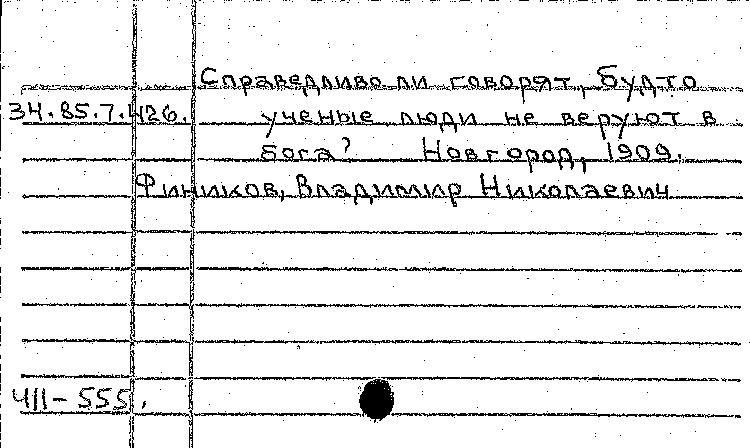 Справедливо ли говорят, будто
34.85.7.426. ученые люди не веруют в
бога? Новгород, 1909.
Фиников, Владимир Николаевич
411-555.